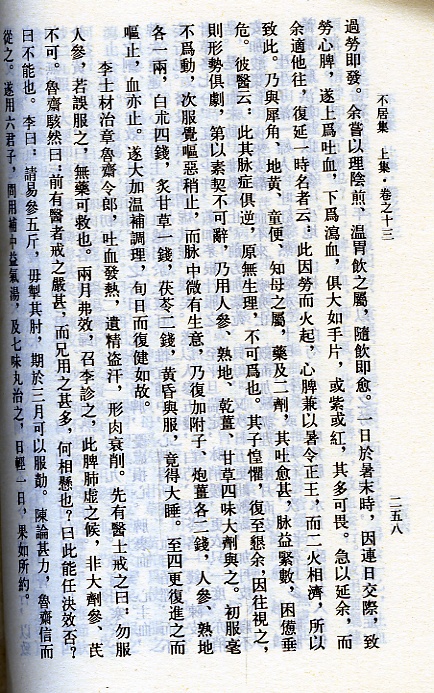 不居集　上集·卷之十三
二五八
過勞即發。余嘗以理陰煎、溫胃飲之屬，隨飲即愈。一日於暑末時，因連日交際，致
勞心脾，遂上爲吐血，下爲瀉血，俱大如手片，或紫或紅，其多可畏。急以延余，而
余適他往，復延一時名者云：此因勞而火起，心脾兼以暑令正王，而二火相濟，所以
致此。乃與犀角、地黃、童便、知母之屬，藥及二劑，其吐愈甚，脉益緊數，困憊垂
危。彼醫云：此其脉症俱逆，原無生理，不可爲也。其子惶懼，復至懇余，因往視之，
則形勢俱劇，第以素契不可辭，乃用人參、熟地、乾薑、甘草四味大劑與之。初服毫
不爲動，次服覺嘔惡稍止，而脉中微有生意，乃復加附子、炮薑各二錢，人參、熟地
各一兩，白朮四錢，炙甘草一錢，茯苓二錢，黃昏與服，竟得大睡。至四更復進之而
嘔止，血亦止。遂大加溫補調理，旬日而復健如故。
李士材治章魯齋令郎，吐血發熱，遺精盜汗，形肉衰削。先有醫士戒之曰：勿服
人參，若誤服之，無藥可救也。兩月弗效，召李診之，此脾肺虛之候，非大劑參、芪
不可。魯齋駭然曰：前有醫者戒之嚴甚，而兄用之甚多，何相懸也？曰此能任決效否？
曰不能也。李曰：請易參五斤，毋掣其肘，期於三月可以服勩。陳論甚力，魯齋信而
從之。遂用六君子，間用補中益氣湯，及七味丸治之，日輕一日，果如所約。